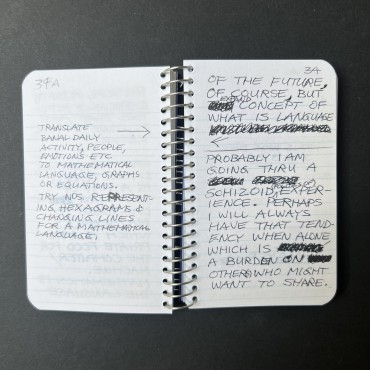 37A
TRANSLATE
BANAL DAILY
ACTIVITY, PEOPLE,
EMOTIONS ETC
TO MATHEMATICAL
LANGUAGE, GRAPHS
OR EQUATIONS.
TRY NOS. REPRESENT-
ING HEXAGRAMS &
CHANGING LINES
FOR A MATHEMATICAL
LANGUAGE.
OF THE FUTURE,
OF COURSE, BUT
EXPAND
CONCEPT OF
WHAT IS LANGUAGE
PROBABLY I AM
GOING THRU A
SCHIZOID EXPER-
IENCE. PERHAPS
I WILL ALWAYS
HAVE THAT TEND-
ENCY WHEN ALONE
WHICH IS
A BURDEN ON
OTHERS WHO MIGHT
WANT TO SHARE.